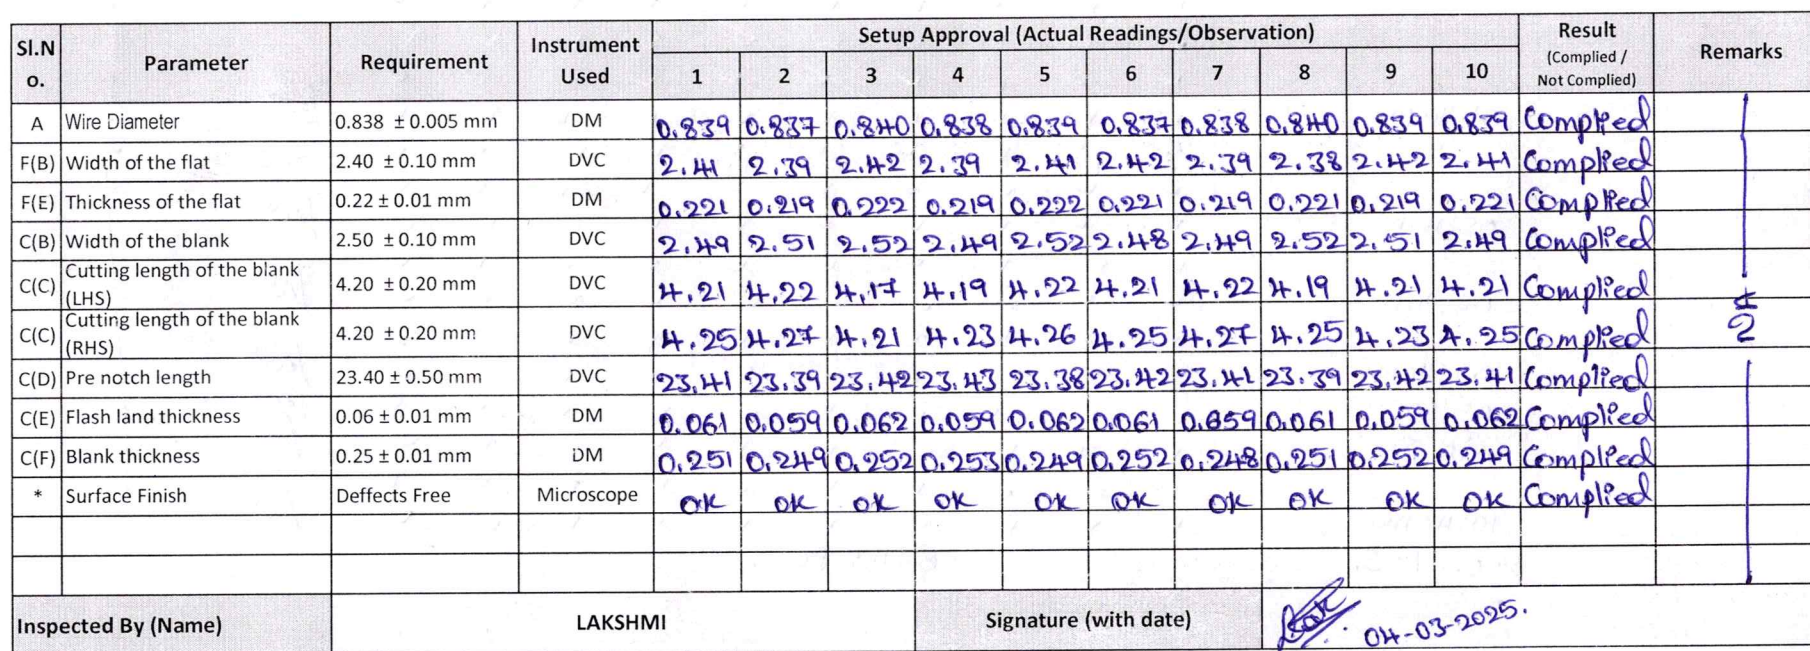 Sl.No. Parameter Requirement Instrument Used Setup Approval (Actual Readings/Observation) Result (Complied / Not Complied) Remarks
1 2 3 4 5 6 7 8 9 10
A Wire Diameter 0.838 ± 0.005 mm DM 0.839 0.837 0.840 0.838 0.839 0.837 0.838 0.840 0.839 0.839 Complied
F(B) Width of the flat 2.40 ± 0.10 mm DVC 2.41 2.39 2.42 2.39 2.41 2.42 2.39 2.38 2.42 2.41 Complied
F(E) Thickness of the flat 0.22 ± 0.01 mm DM 0.221 0.219 0.222 0.219 0.222 0.221 0.219 0.221 0.219 0.221 Complied
C(B) Width of the blank 2.50 ± 0.10 mm DVC 2.49 2.51 2.52 2.49 2.52 2.48 2.49 2.52 2.51 2.49 Complied
C(C) Cutting length of the blank (LHS) 4.20 ± 0.20 mm DVC 4.21 4.22 4.17 4.19 4.22 4.21 4.22 4.19 4.21 4.21 Complied
C(C) Cutting length of the blank (RHS) 4.20 ± 0.20 mm DVC 4.25 4.27 4.21 4.23 4.26 4.25 4.27 4.25 4.23 4.25 Complied
C(D) Pre notch length 23.40 ± 0.50 mm DVC 23.41 23.39 23.42 23.43 23.38 23.42 23.41 23.39 23.42 23.41 Complied
C(E) Flash land thickness 0.06 ± 0.01 mm DM 0.061 0.059 0.062 0.059 0.062 0.061 0.059 0.061 0.059 0.062 Complied
C(F) Blank thickness 0.25 ± 0.01 mm DM 0.251 0.249 0.252 0.253 0.249 0.252 0.248 0.251 0.252 0.249 Complied
* Surface Finish Deffects Free Microscope OK OK OK OK OK OK OK OK OK OK Complied
Inspected By (Name) LAKSHMI Signature (with date) 04-03-2025.